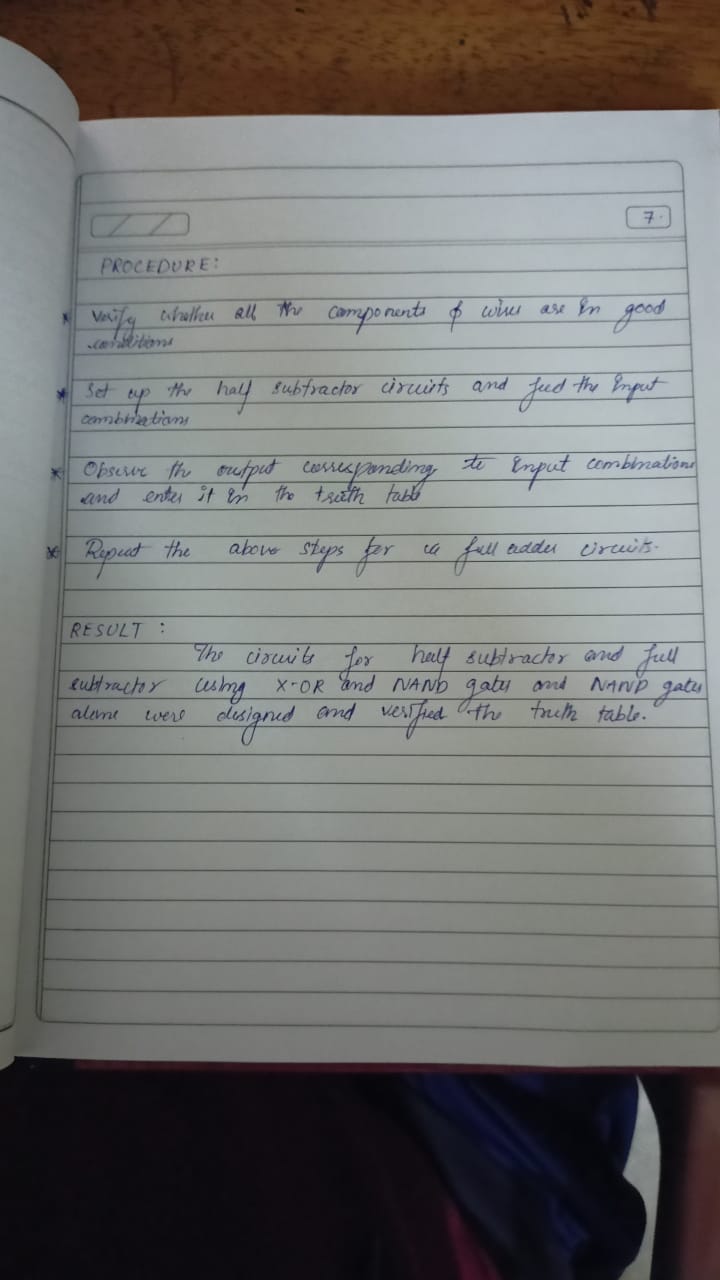 7.
PROCEDURE:
* Verify whether all the components & wires are in good
conditions
* Set up the half subtractor circuits and feed the input
combinations
* Observe the output corresponding to input combinations
and enter it in the truth table
* Repeat the above steps for a full adder circuits.
RESULT :
The circuits for half subtractor and full
subtractor using X-OR and NAND gates and NAND gates
alone were designed and verified the truth table.